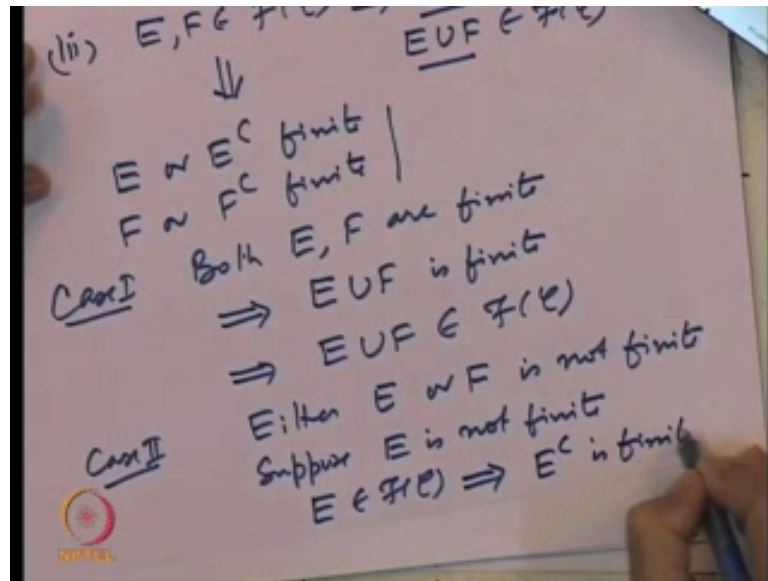 (iii) E, F ∈ F(C)
E ∪ F ∈ F(C)
⇓
E or E^C finite
F or F^C finite
Case I Both E, F are finite
⟹ E ∪ F is finite
⟹ E ∪ F ∈ F(C)
Case II Either E or F is not finite
Suppose E is not finite
E ∈ F(C) ⟹ E^C is finit
NPTEL